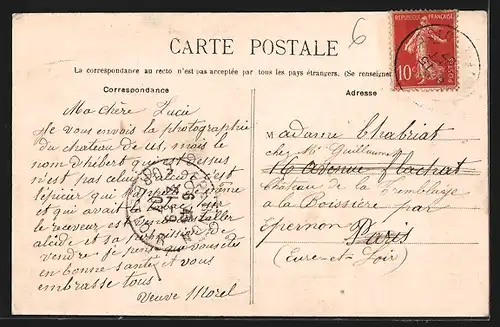 CARTE POSTALE
6
REPUBLIQUE FRANÇAISE
10c
POSTES
La correspondance au recto n'est pas acceptée par tous les pays étrangers. (Se renseigner
Correspondance
Ma chère Lucie
Je vous envois la photographie
du chateau de us, mais le
nom d'hibert qui est dessus
n'est pas celui alcide c'est
l'épicier qui
et qui avait
le receveur est installer
alcide et sa permission de
vendre je pense que vous êtes
en bonne santé et vous
embrasse tous
Veuve Morel
Adresse
Madame Chabriat
chez Mr Guillaume
16 Avenue Flachat
Château de la Tremblaye
a la Boissière par
Epernon Paris
(Eure-et-Loir)